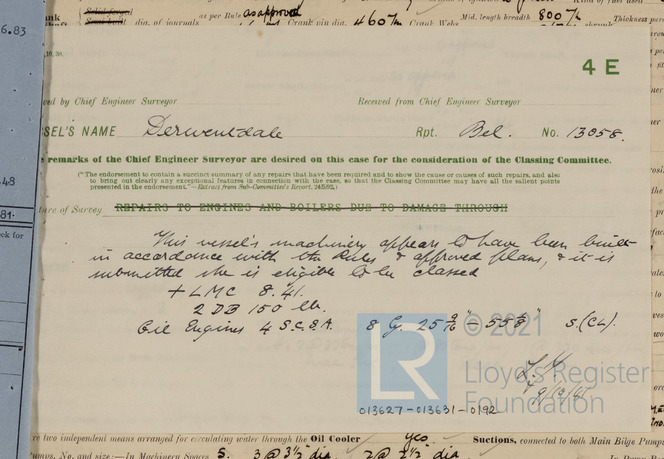 as per Rule as approved
dia. of journals
Crank pin dia. 460 m/m Crank Webs
Mid. length breadth 800 m/m
Thickness
6.83
10.30.
4 E
ved by Chief Engineer Surveyor
Received from Chief Engineer Surveyor
SEL'S NAME Derwentdale Rpt. Bel. No. 13058.
remarks of the Chief Engineer Surveyor are desired on this case for the consideration of the Classing Committee.
("The endorsement to contain a succinct summary of any repairs that have been required and to show the cause or causes of such repairs, and also
to bring out clearly any exceptional features in connection with the case, so that the Classing Committee may have all the salient points
presented in the endorsement."—Extract from Sub-Committee's Report,
48
81.
ture of Survey REPAIRS TO ENGINES AND BOILERS DUE TO DAMAGE THROUGH
ck for
This vessel's machinery appears to have been built
in accordance with the Rules & approved plans, & it is
submitted she is eligible to be classed
+ LMC 8.41.
2 DB 150 lb.
Oil Engines 4 S.C.S.A. 8 Cy. 25 9/16" - 55 1/8" S.(CL).
© 2021
LR
Lloyd's Register
Foundation
013627-013631-0192
re two independent means arranged for circulating water through the Oil Cooler yes
Suctions, connected to both Main Bilge Pumps
umps, No. and size:—In Machinery Spaces 5. 3 @ 3½" dia 2 @ 2½" dia